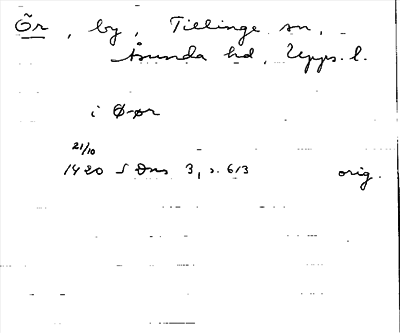 Ör, by, Tillinge sn,
Åsunda hd, Upps. l.
i Ør
21/10
1420 S Dns 3, s. 613 orig.